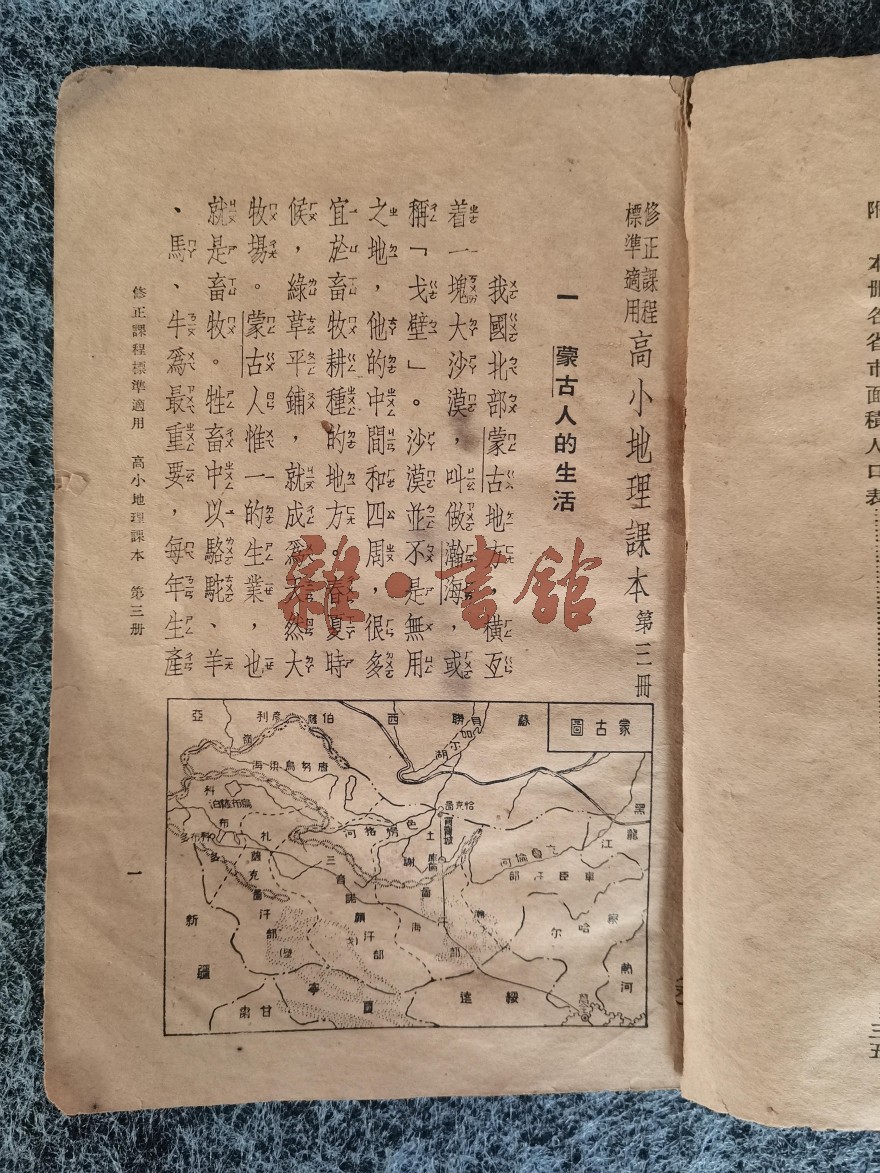 修正課程
標準適用
高小地理課本 第三冊
一 蒙古人的生活
我國北部蒙古地方，橫亙
着一塊大沙漠，叫做瀚海，或
稱「戈壁」。沙漠並不是無用
之地，他的中間和四周，很多
宜於畜牧耕種的地方。春夏時
候，綠草平鋪，就成爲天然大
牧場。蒙古人惟一的生業，也
就是畜牧。牲畜中以駱駝、羊
、馬、牛爲最重要，每年生產
修正課程標準適用 高小地理課本 第三册
一
蒙古圖
蘇聯西伯利亞
貝加爾湖
唐努烏梁海
恰克圖
買賣城
庫倫
色楞格河
克魯倫河
科布多
土謝圖汗部
車臣汗部
三音諾顏汗部
扎薩克圖汗部
瀚海
黑龍江
察哈尔
熱河
綏遠
寧夏
甘肅
新疆
雜·書館
附 本册各省市面積人口表
三五